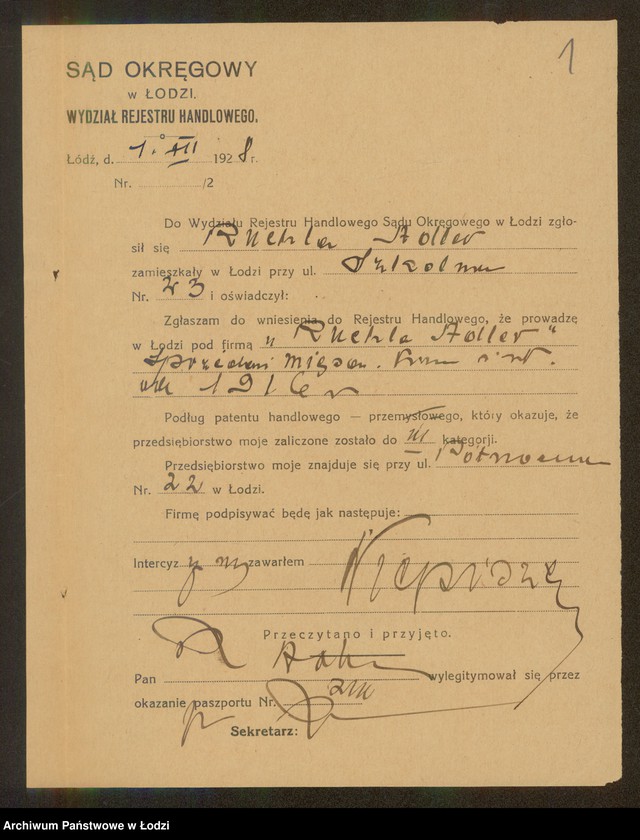 1
SĄD OKRĘGOWY
w ŁODZI.
WYDZIAŁ REJESTRU HANDLOWEGO.
Łódź, d. 1. XII 1928 r.
Nr. /2
Do Wydziału Rejestru Handlowego Sądu Okręgowego w Łodzi zgło-
sił się Ruchla Adler
zamieszkały w Łodzi przy ul. Szkolna
Nr. 23 i oświadczył:
Zgłaszam do wniesienia do Rejestru Handlowego, że prowadzę
w Łodzi pod firmą „Ruchla Adler"
Sprzedaż mięsa
od 1916 r
Podług patentu handlowego — przemysłowego, który okazuje, że
przedsiębiorstwo moje zaliczone zostało do III kategorji.
Przedsiębiorstwo moje znajduje się przy ul. Północna
Nr. 22 w Łodzi.
Firmę podpisywać będę jak następuje:
Intercyz zawarłem
Przeczytano i przyjęto.
R Adler
Pan wylegitymował się przez
okazanie paszportu Nr.
Sekretarz:
Archiwum Państwowe w Łodzi